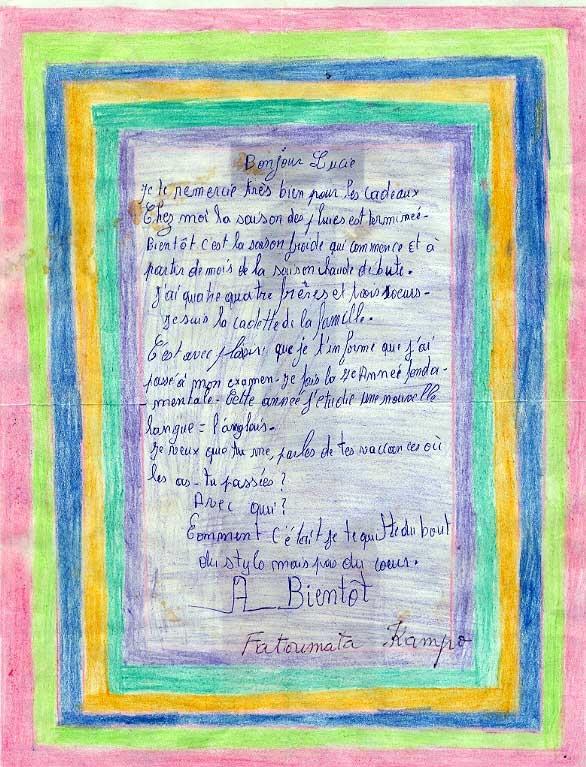 Bonjour Lucie
Je te remercie très bien pour les cadeaux
Chez moi la saison des pluies est terminée-
Bientôt c'est la saison froide qui commence et à
partir de mois de la saison chaude débute.
J'ai quatre quatre frères et trois soeurs-
Je suis la cadette de la famille.
C'est avec plaisir que je t'informe que j'ai
passé à mon examen- Je fais la 7e Année fonda-
-mentale- Cette année j'étudie une nouvelle
langue = l'anglais.
Je veux que tu me parles de tes vaccances où
les as-tu passées ?
Avec qui ?
Comment c'était je te quitte du bout
du stylo mais pas du coeur.
A Bientôt
Fatoumata Kampo